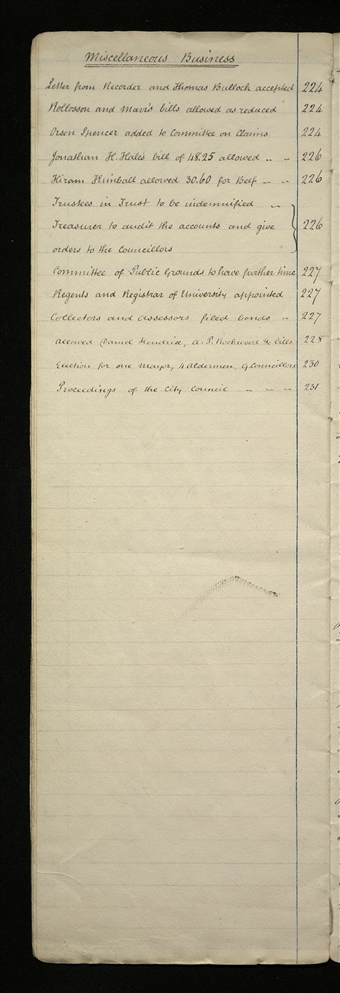 Miscellaneous Business
Letter from Recorder and Thomas Bullock accepted 224
and bills allowed as reduced 224
Orson Spencer added to Committee on Claims 224
Jonathan H. Hale's bill of 48.25 allowed " " 226
Hiram Kimball allowed 30.60 for Beef " " 226
Trustees in Trust to be indemnified "
Treasurer to audit the accounts and give 226
orders to the Councillors
Committee of Public Grounds to have further time 227
Regents and Registrar of University appointed 227
Collectors and Assessors filed bonds " 227
allowed Daniel Hendrix, A. P. Rockwood &c bills 228
Election for one Mayor, 4 Aldermen, 9 Councillors 230
Proceedings of the City Council " " " 231